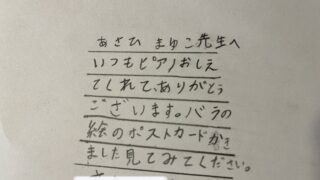 あさひ まゆこ先生へ
いつもピアノおしえ
てくれて、ありがとう
ございます。バラの
絵のポストカードかき
ました見てみてください。